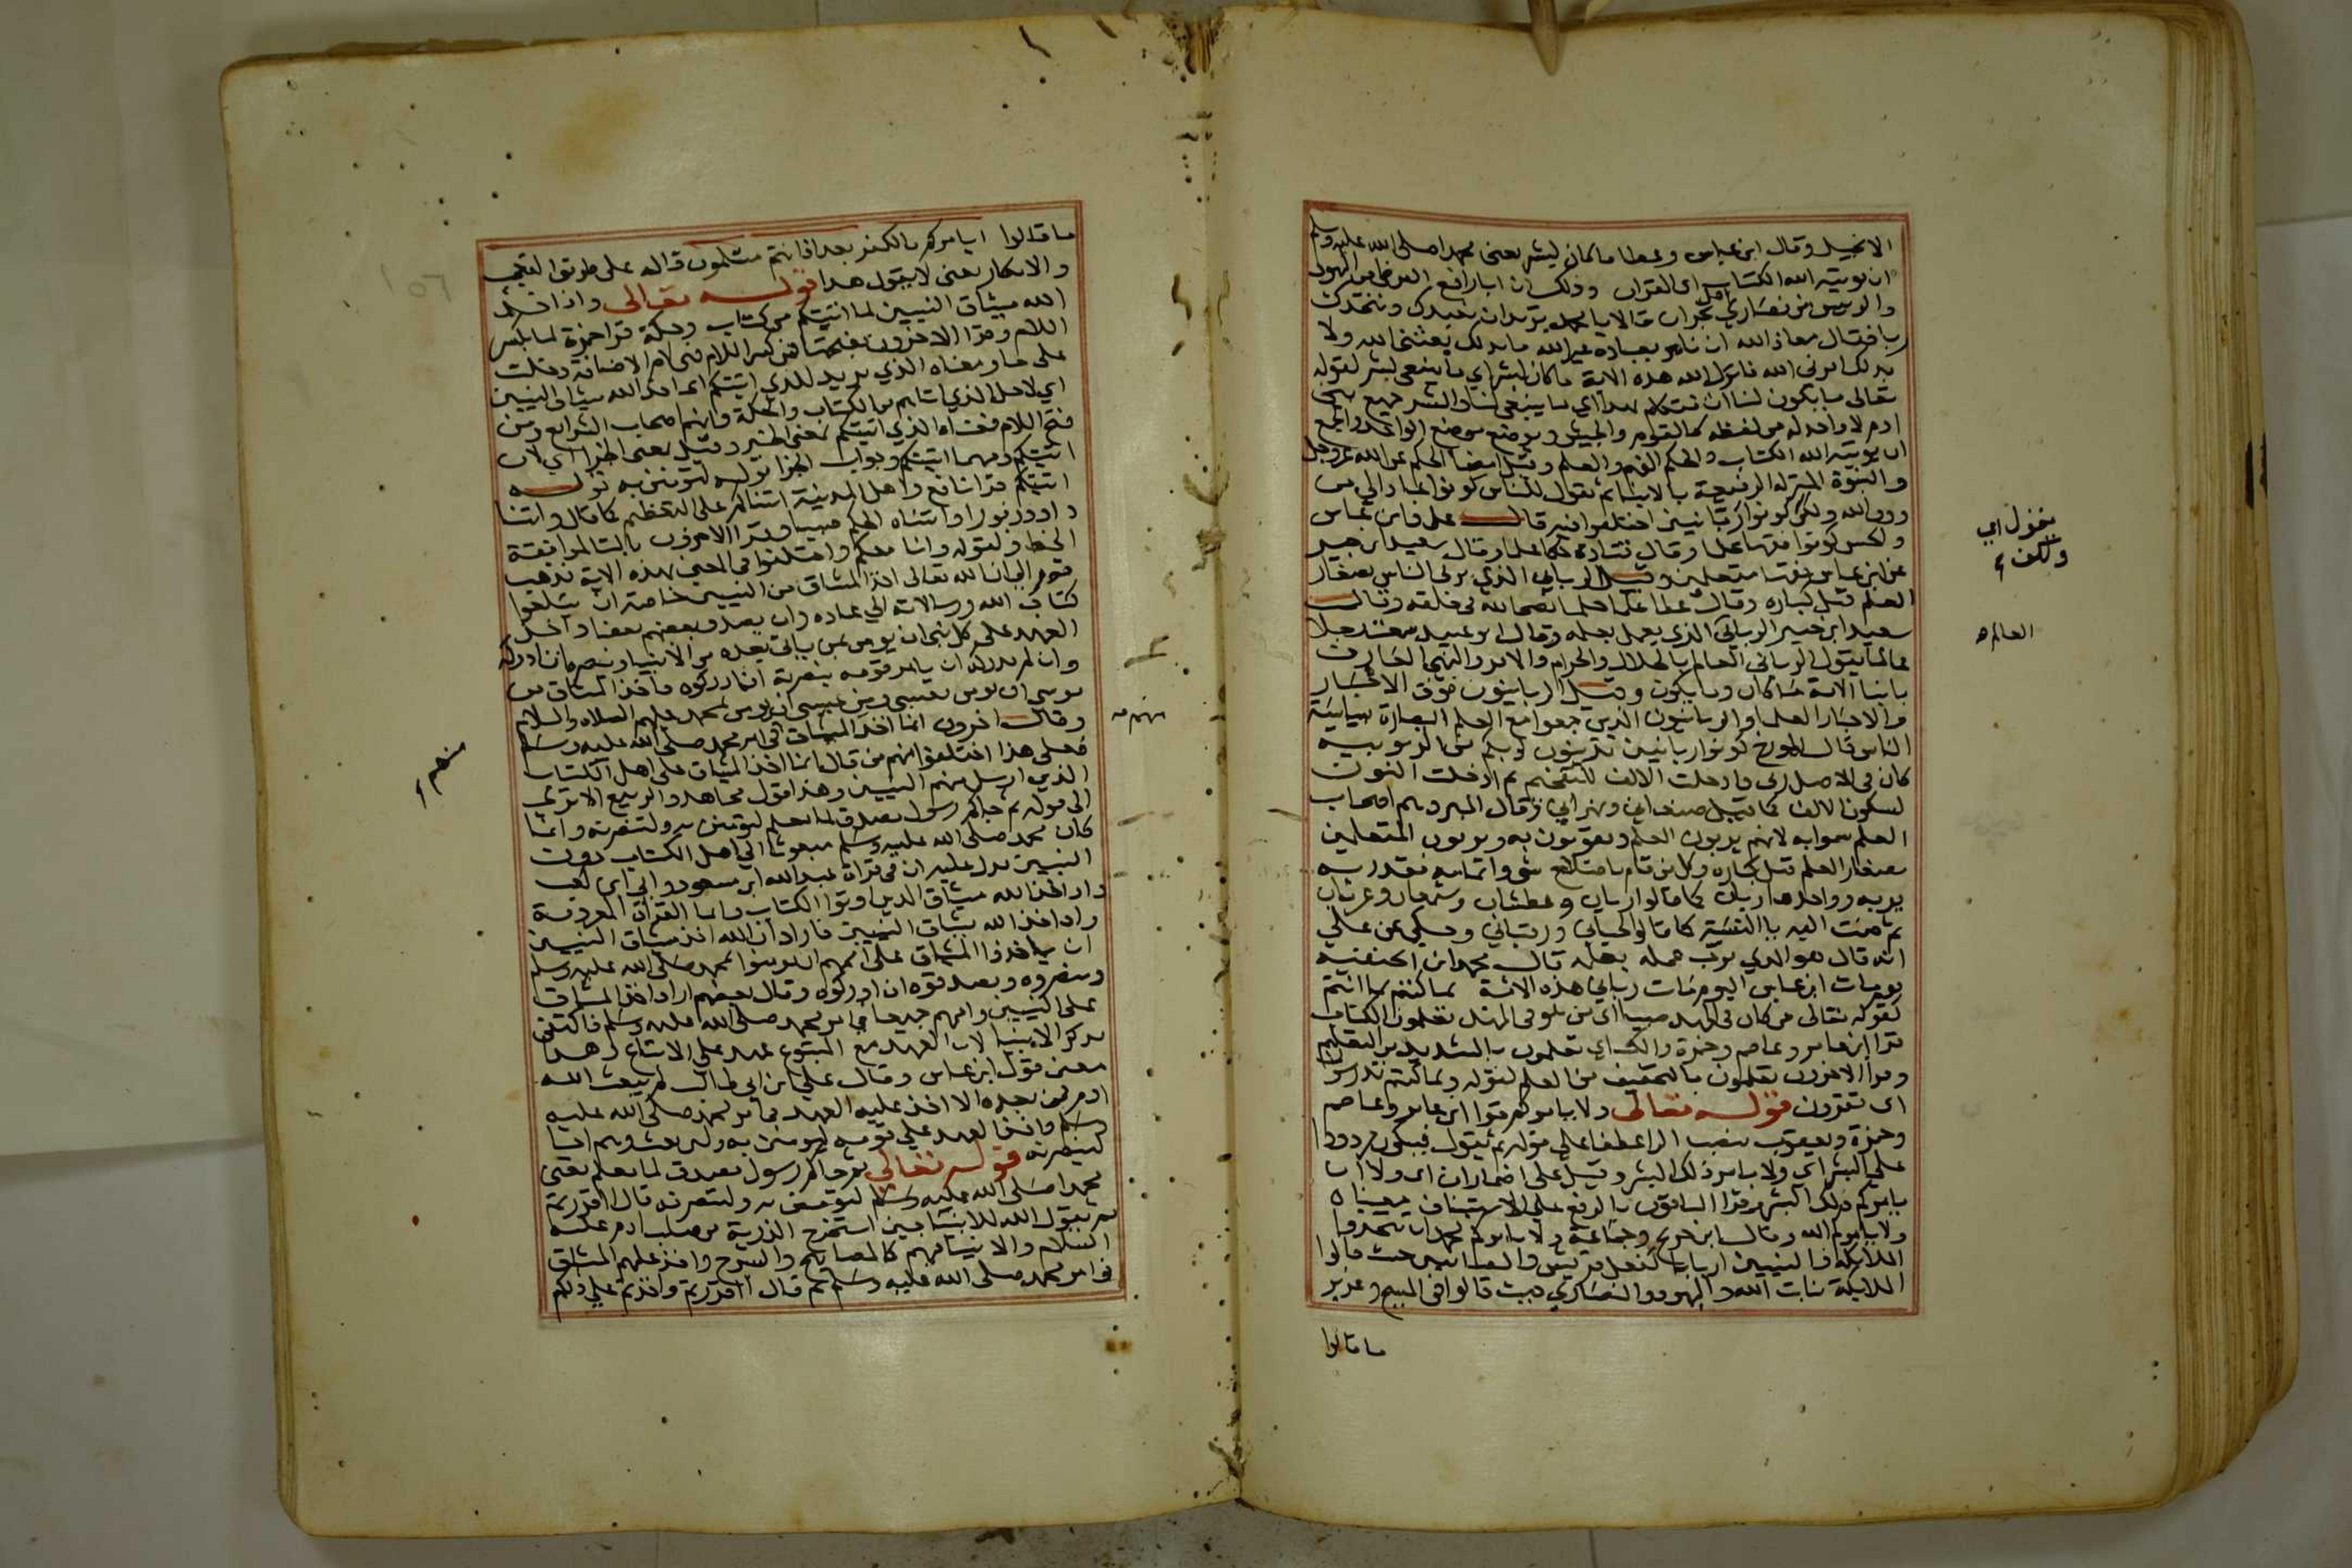 الانجيل وقال ابن عباس وعطا ما كان لبشر يعنى محمدا صلى الله عليه وسلم
ان يوتيه الله الكتاب اى القران وذلك ان ابا رافع القرظى من اليهود
والرييس من نصارى اهل نجران قالا يا محمد تريد ان نعبدك ونتخذك
ربا فقال معاذ الله ان نامر بعبادة غير الله ما بذلك بعثنى الله ولا
بذلك امرنى الله فانزل الله هذه الاية ما كان لبشر اي ما ينبغى لبشر لقوله
تعالى ما يكون لنا ان نتكلم بهذا اي ما ينبغى لنا والبشر جميع بنى
ادم لا واحد له من لفظه كالقوم والجيش ويوضع موضع الواحد والجمع
ان يوتيه الله الكتاب والحكم الفهم والعلم وقيل امضا الحكم عن الله عز وجل
والنبوة المنزلة الرفيعة بالانبيا ثم يقول للناس كونوا عبادا لي من
دون الله ولكن كونوا ربانيين اختلفوا فيه قال على وابن عباس
ولحسن كونوا فقها علما وقال قتادة حكما علما وقال سعيد ابن جبير
عن ابن عباس فقها متعلمين وقيل الربانى الذي يربى الناس بصغار
العلم قبل كباره وقال عطا علما حلما نصحا لله فى خلقه وقال
سعيد ابن جبير الربانى الذي يعمل بعلمه وقال ابو عبيد سمعت رجلا
عالما يقول الربانى العالم بالحلال والحرام والامر والنهي العارف
بانبا الامة ما كان وما يكون وقيل الربانيون فوق الاحبار
والاحبار العلما والربانيون الذين جمعوا مع العلم البصارة بسياسة
الناس قال المورخ كونوا ربانيين تدينون لربكم من الربوبية
كان فى الاصل ربى فادخلت الالف للتفخيم ثم ادخلت النون
لسكون الالف كما قيل صنعانى وبهرانى وقال المبرد هم اصحاب
العلم سموا به لانهم يربون العلم ويقومون به ويربون المتعلمين
بصغار العلم قبل كباره وكل من قام باصلاح شى واتمامه فقد ربه
يربه وواحدها ربان كما قالوا ريان وعطشان وشبعان وعريان
ثم ضمت اليه يا النسبة كما قالوا لحيانى ورقبانى وحكى عن على
انه قال هو الذي يرب عمله بعلمه قال محمد ابن الحنفية
يوم مات ابن عباس اليوم مات ربانى هذه الامة بما كنتم بما انتم
كقوله تعالى من كان فى المهد صبيا اى من هو فى المهد تعلمون الكتاب
قرا ابن عامر وعاصم وحمزة والكساى تعلمون بالتشديد من التعليم
وقرا الاخرون تعلمون بالتخفيف من العلم لقوله وبما كنتم تدرسون
اى تقرون قوله تعالى ولا يامركم قرا ابن عامر وعاصم
وحمزة ويعقوب بنصب الرا عطفا على قوله ثم يقول فيكون مردودا
على البشر اى ولا يامر ذلك البشر وقيل على اضمار ان اى ولا ان
يامركم ذلك البشر وقرا الباقون بالرفع على الاستيناف معناه
ولا يامركم الله وقال ابن جريج وجماعة ولا يامركم محمد ان تتخذوا
الملايكة والنبيين اربابا كفعل قريش والصابيين حيث قالوا
الملايكة بنات الله واليهود والنصاري حيث قالوا فى المسيح وعزير
ما قالوا
يقول اي
ولكن
العالم
ما قالوا ايامركم بالكفر بعد اذ انتم مسلمون قاله على طريق التعجب
والانكار يعنى لا يقول هذا قوله تعالى واذ اخذ
الله ميثاق النبيين لما اتيتكم من كتاب وحكمة قرا حمزة لما بكسر
اللام وقرا الاخرون بفتحها فمن كسر اللام فهى لام الاضافة دخلت
على ما ومعناه الذي يريد للذي اتيتكم اى اخذ الله ميثاق النبيين
اي لاجل الذي اتاهم من الكتاب والحكمة وانهم اصحاب الشرايع ومن
فتح اللام فمعناه الذي اتيتكم بمعنى الخبر وقيل بمعنى الجزا اي لان
اتيتكم ومهما اتيتكم وجواب الجزا قوله لتومنن به قوله
اتيتكم قرا نافع واهل المدينة اتيناكم على التعظيم كما قال واتينا
داوود زبورا واتيناه الحكم صبيا وقرا الاخرون بالتا لموافقة
الخط ولقوله وانا معكم واختلفوا فى المعنى بهذه الاية فذهب
قوم الى ان الله تعالى اخذ الميثاق من النبيين خاصة ان يبلغوا
كتاب الله ورسالاته الى عباده وان يصدق بعضهم بعضا واخذ
العهد على كل نبى ان يومن بمن ياتى بعده من الانبيا وينصره ان ادركه
وان لم يدركه ان يامر قومه بنصرته ان ادركوه فاخذ الميثاق من
موسي ان يومن بعيسى ومن عيسى ان يومن بمحمد عليهم الصلاة والسلام
وقال اخرون انما اخذ الميثاق فى امر محمد صلى الله عليه وسلم
فعلى هذا اختلفوا منهم من قال انما اخذ الميثاق على اهل الكتاب
الذين ارسل منهم النبيين وهذا قول مجاهد والربيع الا ترى
الى قوله ثم جاكم رسول مصدق لما معكم لتومنن به ولتنصرنه وانما
كان محمد صلى الله عليه وسلم مبعوثا الى اهل الكتاب دون
النبيين يدل عليه ان فى قراة عبد الله ابن مسعود وابى ابن كعب
واذ اخذ الله ميثاق الذين اوتوا الكتاب واما القراة المعروفة
واذ اخذ الله ميثاق النبيين فاراد ان الله اخذ ميثاق النبيين
ان ياخذوا الميثاق على اممهم ان يومنوا بمحمد صلى الله عليه وسلم
وينصروه ويصدقوه ان ادركوه وقال بعضهم اراد اخذ الميثاق
على النبيين واممهم جميعا فى امر محمد صلى الله عليه وسلم فاكتفى
بذكر الانبيا لان العهد مع المتبوع عهد على الاتباع وهذا
معنى قول ابن عباس وقال على ابن ابى طالب لم يبعث الله
ادم فمن بعده الا اخذ عليه العهد فى امر محمد صلى الله عليه
وسلم واخذ العهد على قومه ليومنن به ولين بعث وهم احيا
لينصرنه قوله تعالى ثم جاكم رسول مصدق لما معكم يعنى
محمدا صلى الله عليه وسلم لتومنن به ولتنصرنه قال ااقررتم
ثم يقول الله للانبيا حين استخرج الذرية من صلب ادم عليه
السلام والانبيا فيهم كالمصابيح والسرج واخذ عليهم الميثاق
فى امر محمد صلى الله عليه وسلم ثم قال ااقررتم واخذتم على ذلكم
منهم